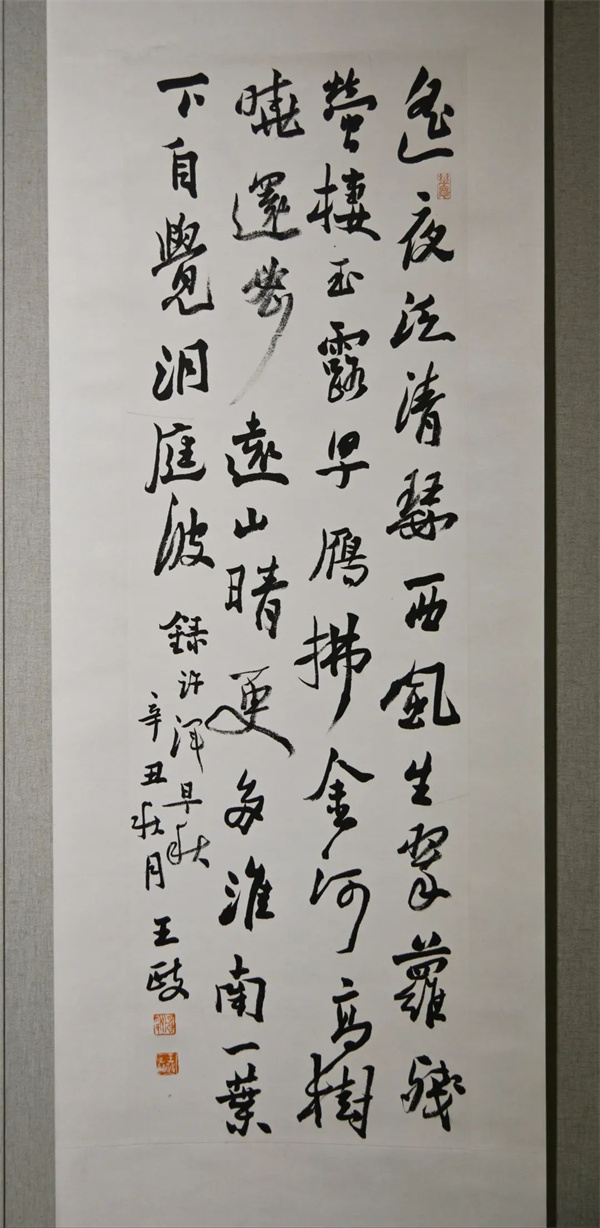 遙夜泛清瑟西風生翠蘿殘
螢棲玉露早鴈拂金河高樹
曉還密遠山晴更多淮南一葉
下自覺洞庭波
錄許渾早秋
辛丑秋月 王